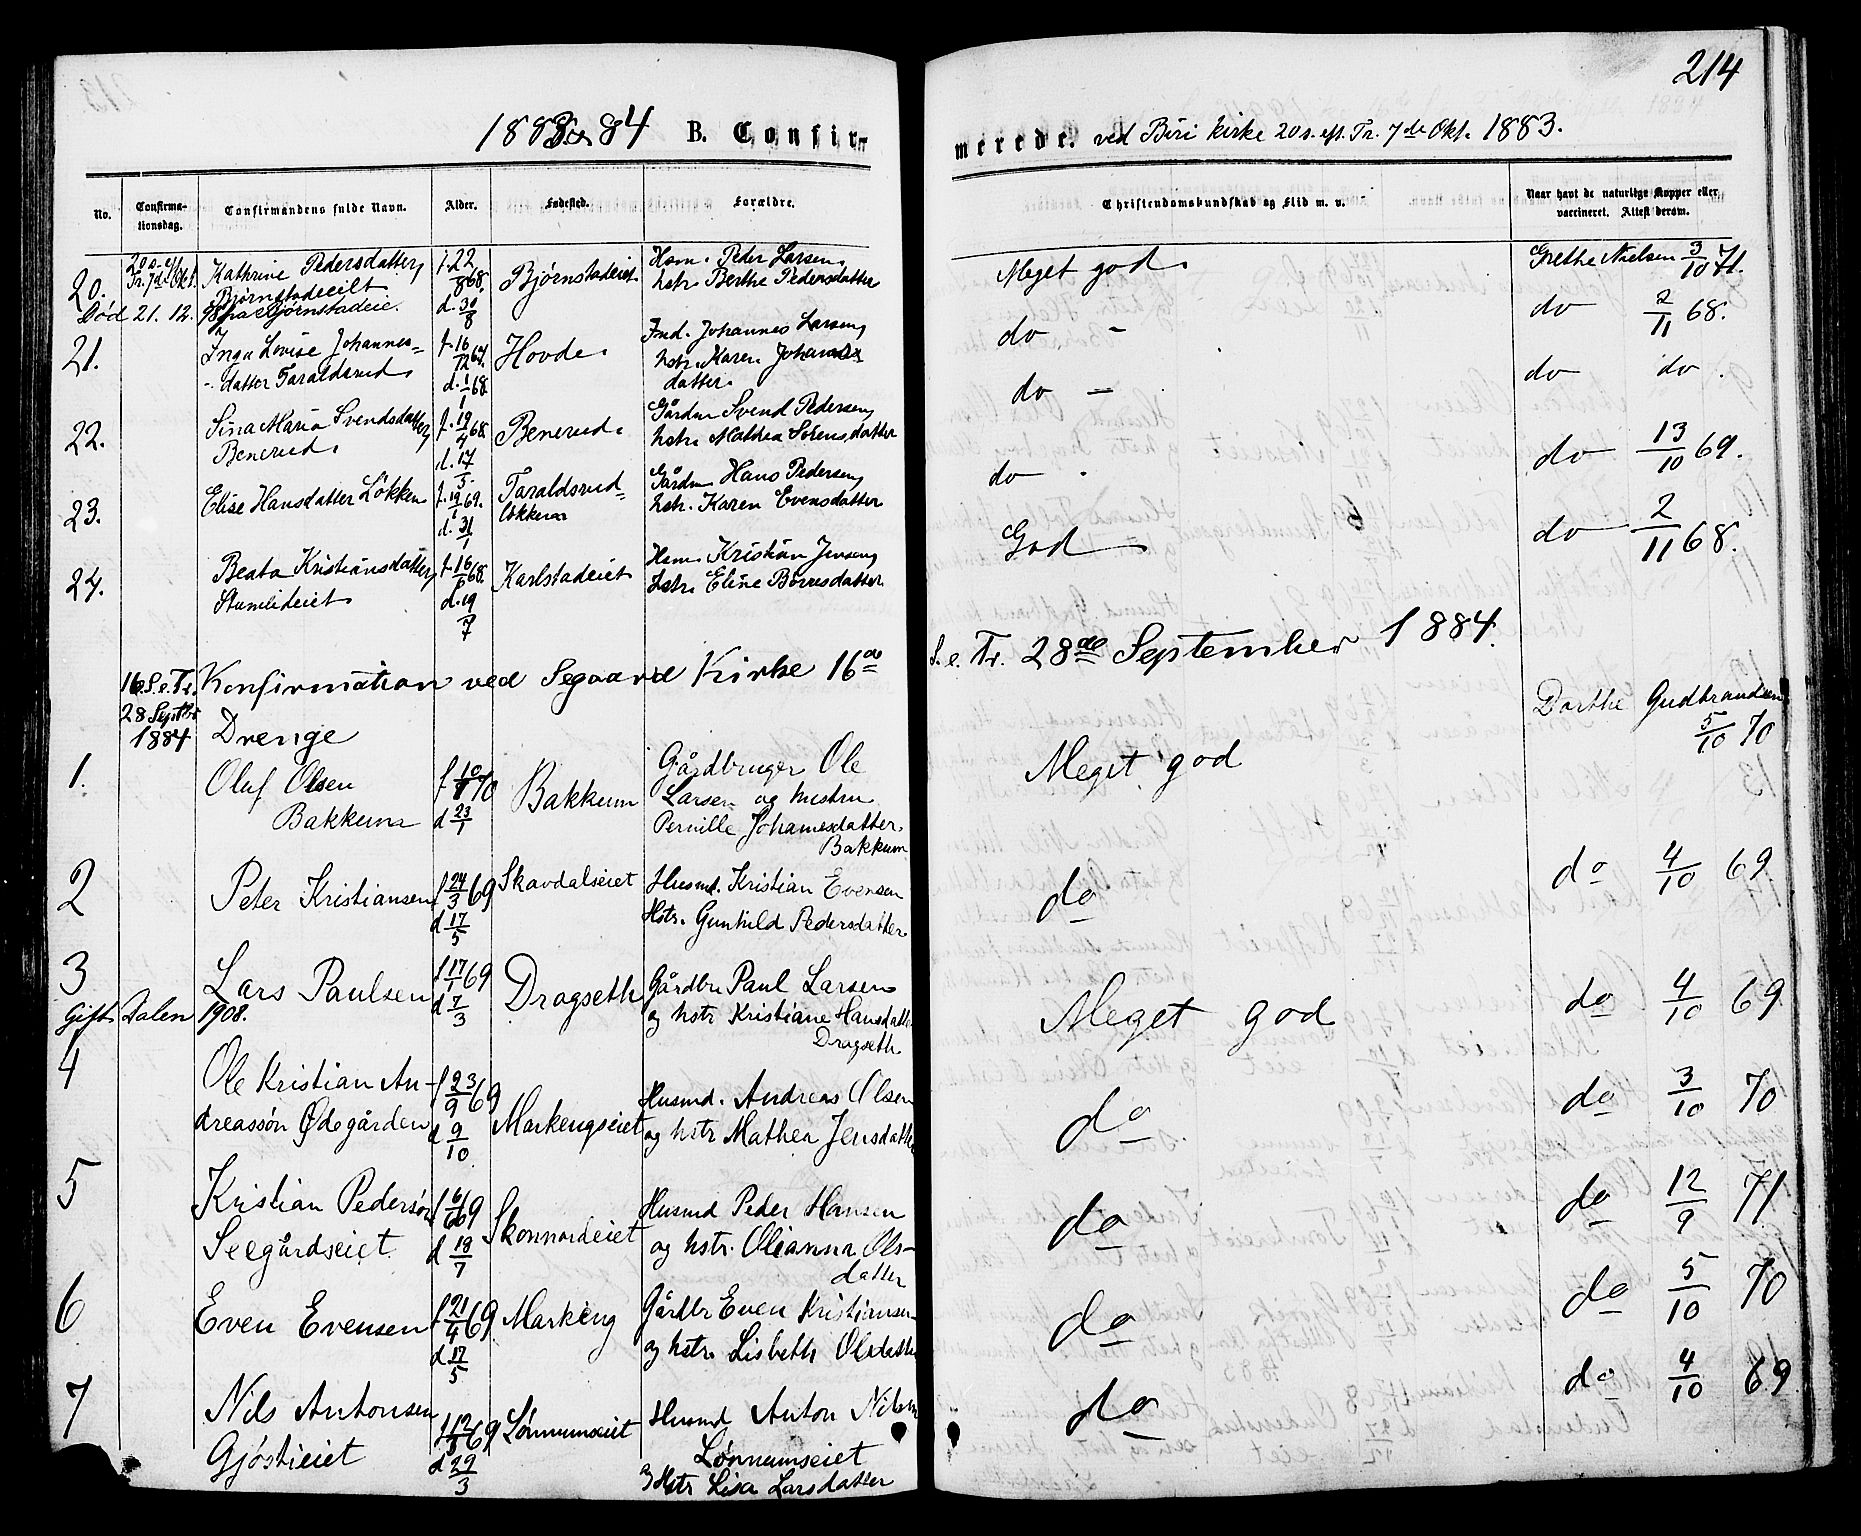 214
1883 og 84 B. Confir-
merede. ved Biri kirke 20 s. eft. Tr. 7de Okt. 1883.
No. Confirma-tionsdag. Confirmandens fulde Navn. Alder. Fødested. Forældre. Christendomskundskab og Flid m. v. Naar havt de naturlige Kopper eller vaccineret. Attest derom.
20. 20 s. e. Tr. 7de Okt. Kathrine Pedersdatter f. 22/8 68. Bjørnstadeiet Hsm. Peder Larsen, Meget god. Grethe Nielsen 3/10 71.
Bjørnstadeiet d. 30/8 hstr. Berthe Pedersdatter
Død 21. 12. Bjørnstadeie.
21. Inga Lovise Johannes= f. 16/12 67. Hovde. Ind. Johannes Larsen, do - do 2/11 68.
- datter Taraldsrud. d. 1/1 68 hstr. Karen
datter.
22. Sina Maria Svendsdatter f. 19/4 68. Benerud. Gårdm Svend Pedersen, do - do do.
Benerud. d. 17/5 hstr. Mathea Sörensdatter
23. Elise Hansdatter Løkken f. 19/1 69. Taraldsrud= Gårdm Hans Pedersen, do - do 13/10 69.
d. 31/1 løkken hstr. Karen Evensdatter
24. Beata Kristiansdatter f. 16/6 68. Karlstadeiet Hsm. Kristian Jensen, God do 2/11 68.
Stumlideiet d. 19/7 hstr. Eline Börresdatter
16 S. e. Tr. Konfirmation ved Segaard Kirke 16de S. e. Tr. 28de September 1884.
28 Septbr
1884 Drenge
1. Oluf Olsen f 10/1 70 Bakkum Gårdbruger Ole Meget god Dorthe Gudbrandsen 5/10 70
Bakkum d 23/1 Larsen og hustru
Pernille Johannesdatter.
Bakkum
2 Peter Kristiansen f 24/3 69 Skavdalseiet Husmd. Kristian Evensen do do 4/10 69
d 17/5 Hstr. Gunhild Pedersdatter
3 Lars Paulsen f 17/1 69 Dragseth Gårdbr Paul Larsen Meget god do 4/10 69
d 7/3 og hstr Kristiane Hansdatter
Gift Dalen 1908. Dragseth
4 Ole Kristian An- f 23/9 69 Markengseiet Husmd. Andreas Olsen do do 3/10 70
dreassön Ødegården d 9/10 og hstr Mathea Jensdatter
5 Kristian Pedersön f 6/6 69 Skonnordeiet Husmd Peder Hansen do do 12/9 71
Seegårdseiet d 18/7 og hstr. Olianna Ols-
datter
6 Even Evensen f 21/4 69 Markeng Gårdbr Even Kristiansen do do 5/10 70
d 17/5 og hstr. Lisbeth Olsdatter
7 Nils Antonsen f 12/3 69 Lønnumseiet Husmd Anton Nilsen do do 4/10 69
Gjøstieiet d 29/3 Lønnumseiet
Hstr Lisa Larsdatter